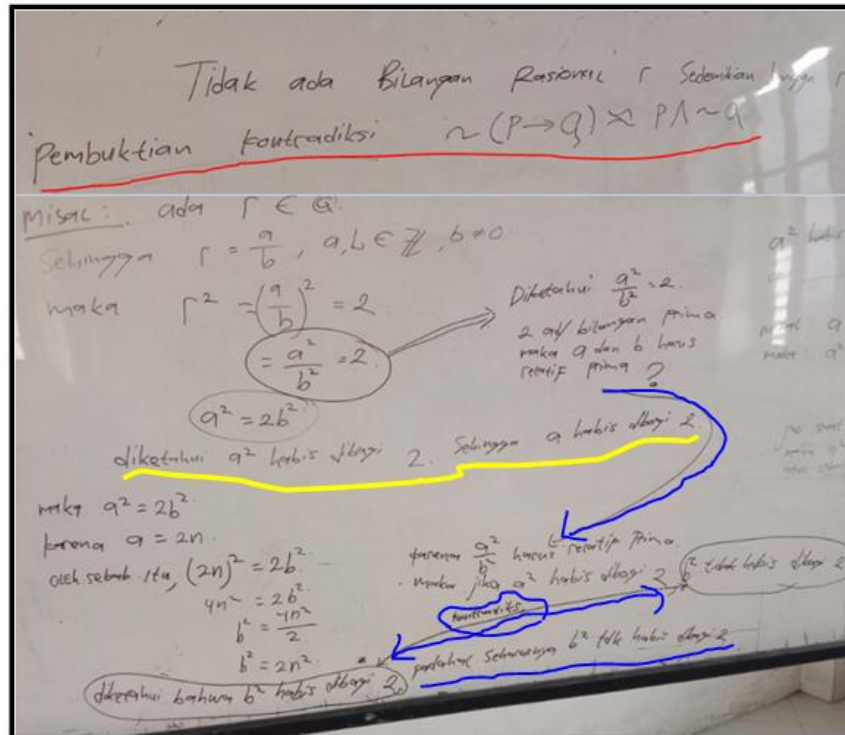 Tidak ada Bilangan Rasional r Sedemikian hingga r
Pembuktian kontradiksi ~(P→q) ≈ P∧~q
Misal : ada r ∈ Q.
Sehingga r = a/b, a,b ∈ Z, b≠0.
maka r² = (a/b)² = 2
= a²/b² = 2
a² = 2b²
Diketahui a²/b² = 2.
2 adl bilangan prima
maka a dan b harus
relatif prima ?
diketahui a² habis dibagi 2. Sehingga a habis dibagi 2.
maka a² = 2b²
karena a = 2n.
oleh sebab itu, (2n)² = 2b²
4n² = 2b²
b² = 4n²/2
b² = 2n²
diketahui bahwa b² habis dibagi 2.
karena a²/b² harus relatif prima.
maka jika a² habis dibagi 2 b² tidak habis dibagi 2
kontradiksi
padahal seharusnya b² tdk habis dibagi 2
a² habis
misal a
maka : a²